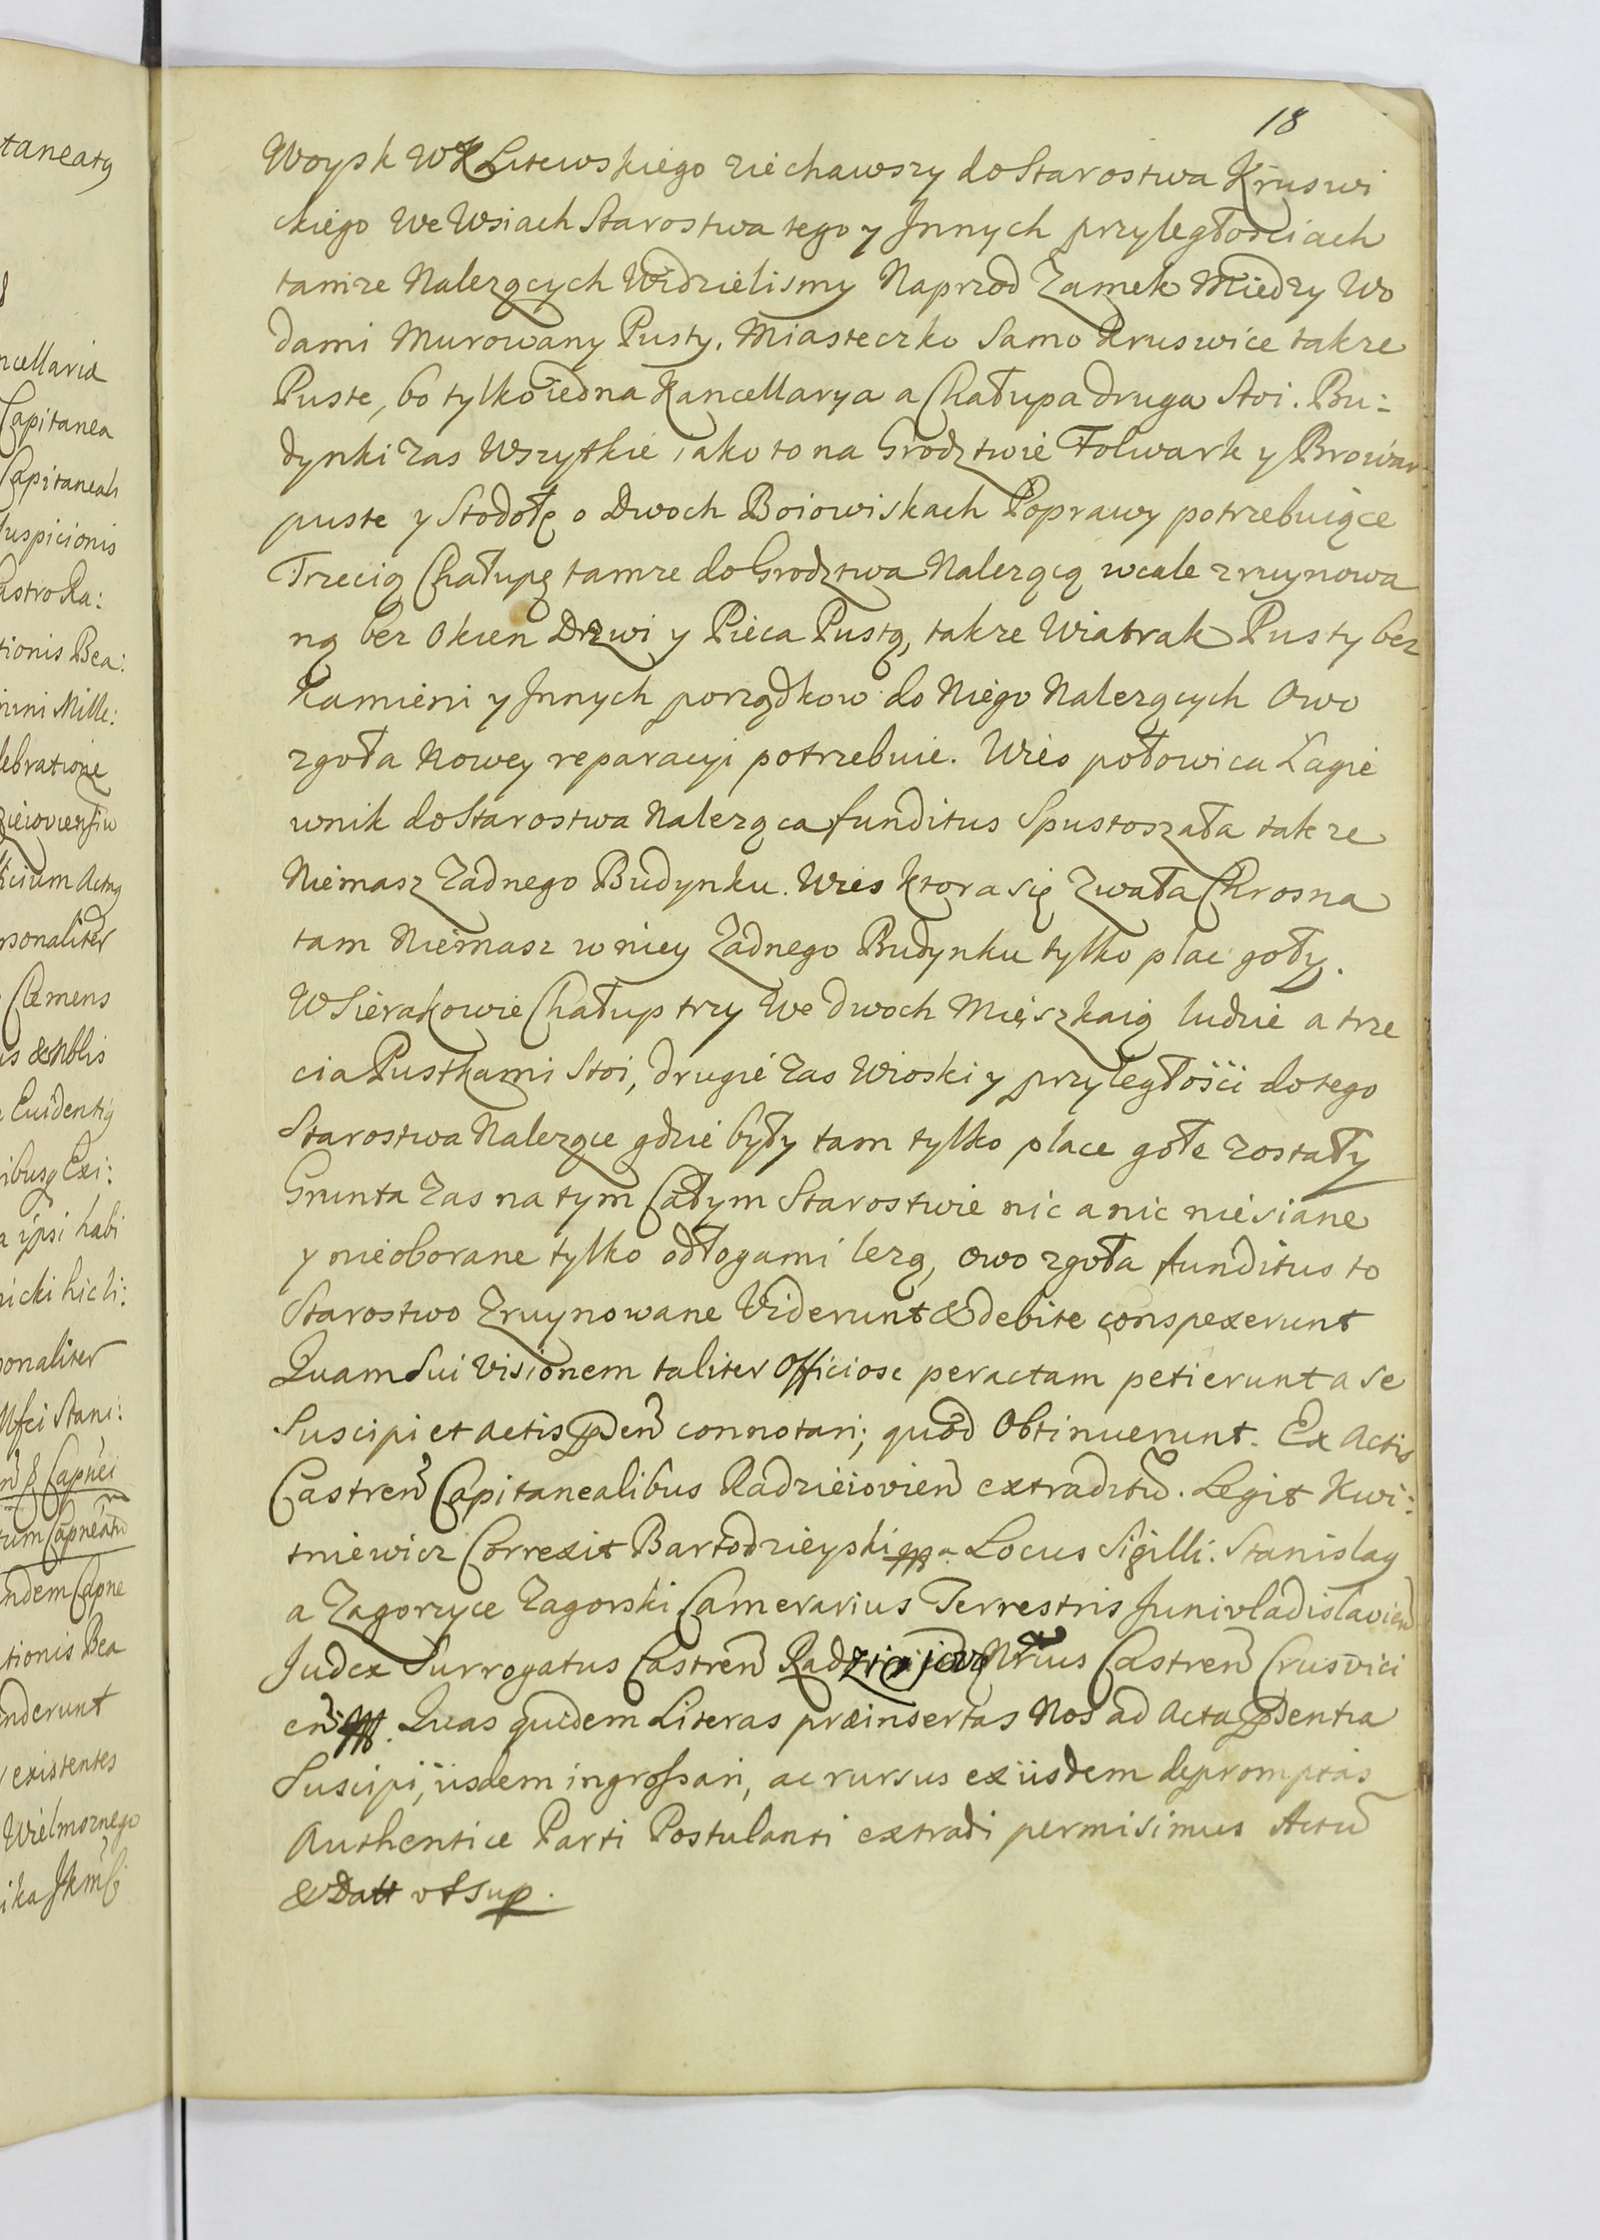 18
Woysk WX Litewskiego ziechawszy do Starostwa Kruswi
ckiego We Wsiach Starostwa tego y Jnnych przyległosciach
tamze Nalezących Widzielismy Naprzod Zamek Miedzy Wo
dami Murowany Pusty. Miasteczko Samo Kruswice takze
Puste, bo tylko iedna Kancellarya a Chałupa druga Stoi. Bu:
dynki Zas Wszytkie iako to na Grodztwie Folwark y Browar
puste y Stodołę o Dwoch Boiowiskach Poprawy potrzebuiące
Trzecią Chałupę tamze do Grodztwa Nalezącą wcale zruynowa
ną bez Okien Drzwi y Pieca Pustą, takze Wiatrak Pusty bez
Kamieni y Jnnych porządkow do Niego Nalezących Owo
zgoła Nowey reparacyi potrzebuie. Wies połowica Łagie
wnik do Starostwa Naleząca funditus Spustoszała takze
Niemasz Zadnego Budynku. Wies ktora się Zwała Chrosna
tam Niemasz w niey Zadnego Budynku tylko plac goły.
W Sierakowie Chałup trzy We dwoch Mięszkaią ludzie a trze
cia Pustkami Stoi, drugie Zas Wioski y przyległości do tego
Starostwa Nalezące gdzie były tam tylko place gołe zostały
Grunta Zas na tym Całym Starostwie nic a nic niesiane
y nieoborane tylko odłogami lezą, owo zgoła funditus to
Starostwo Zruynowane Viderunt & debite conspexerunt
Quam Sui Visionem taliter Officiose peractam petierunt a se
Suscipi et Actis pden connotari; quod Obtinuerunt. Ex Actis
Castren Capitanealibus Radzieiovien extraditu. Legit Kwi:
tniewicz Correxit Bartodzieyski mpp. Locus Sigilli. Stanislaq
a Zagorzyce Zagorski Camerarius Terrestris Junivladislavien
Judex Surrogatus Castren Radziejov Nrius Castren Crusvici
en mpp. Quas quidem Literas præinsertas Nos ad Acta pdentia
Suscipi, iisdem ingrossari, ac rursus ex iisdem depromptas
Authentice Parti Postulanti extradi permisimus Actu
& Datt vt sup.
taneatq
ncellaria
Capitanea
Capitaneali
Suspicionis
astro Ra:
tionis Bea:
nini Mille:
lebratione
icium Actuq
rsonaliter
Clemens
Evidentiq
ibusq Exi:
a ipsi habi
nicki hic li:
sonaliter
Mfci Stani:
Captei
tum Capneatu
ndem Capne
tionis Bea
nderunt
existentes
Wielmoznego